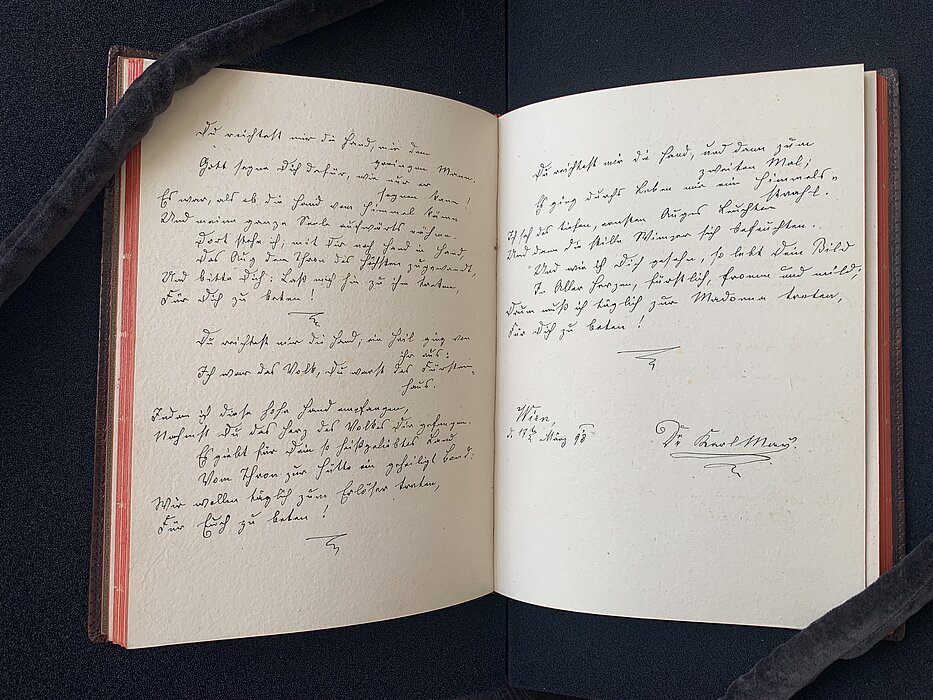 Du reichtest mir die Hand, mir dem
geringen Mann.
Gott segne Dich dafür, wie nur er
segnen kann!
Es war, als ob die Hand vom Himmel käme
Und meine ganze Seele aufwärts nähme.
Dort stehe ich, mit Dir noch Hand in Hand,
Das Aug dem Thron des Höchsten zugewandt,
Und bitte Dich: Laß mich hin zu ihm treten,
Für Dich zu beten!
Du reichtest mir die Hand; ein Heil ging von
ihr aus:
Ich war das Volk, Du warst das Fürsten-
haus.
Indem ich diese hohe Hand empfangen,
Nahmst Du das Herz des Volkes Dir gefangen.
Es giebt für Dein so heißgeliebtes Land
Vom Thron zur Hütte ein geheiligt Band:
Wir wollen täglich zum Erlöser treten,
Für Euch zu beten!
Du reichtest mir die Hand, und dann zum
zweiten Mal;
Es ging durchs Leben mir ein Himmels-
strahl.
Ich sah des tiefen, ernsten Auges Leuchten
Und dann die stille Wimper sich befeuchten.
Und wie ich Dich gesehn, so lebt Dein Bild
In Aller Herzen, fürstlich, fromm und mild;
Drum muß ich täglich zur Madonna treten,
Für Dich zu beten!
Wien,
d. 19/3 März 98
Dr. Karl May.